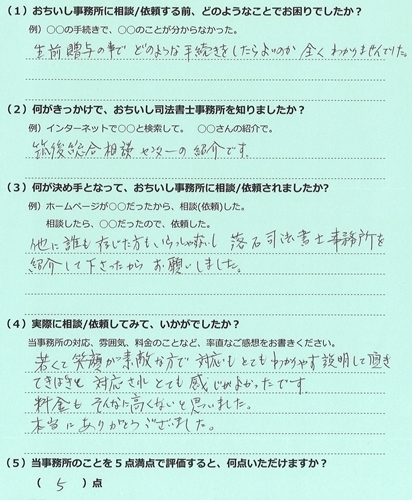 （1）おちいし事務所に相談/依頼する前、どのようなことでお困りでしたか？
例）○○の手続きで、○○のことが分からなかった。
生前贈与の事で どのような手続きをしたらよいのか 全くわかりませんでした。
（2）何がきっかけで、おちいし司法書士事務所を知りましたか？
例）インターネットで○○と検索して。 ○○さんの紹介で。
筑後総合相談センターの紹介です。
（3）何が決め手となって、おちいし事務所に相談/依頼されましたか？
例）ホームページが○○だったから、相談(依頼)した。
相談したら、○○だったので、依頼した。
他に誰も存じた方もいらっしゃないし 落石司法書士事務所を
紹介して下さったから お願いしました。
（4）実際に相談/依頼してみて、いかがでしたか？
当事務所の対応、雰囲気、料金のことなど、率直なご感想をお書きください。
若くて笑顔が素敵な方で 対応もとてもわかりやす説明して頂き
てきぱきと 対応され とても 感じがよかったです
料金も そんなに高くないと思いました。
本当にありがとうございました。
（5）当事務所のことを５点満点で評価すると、何点いただけますか？
（ 5 ）点